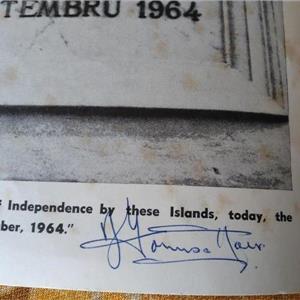 TEMBRU 1964
Independence by these Islands, today, the
ber, 1964."